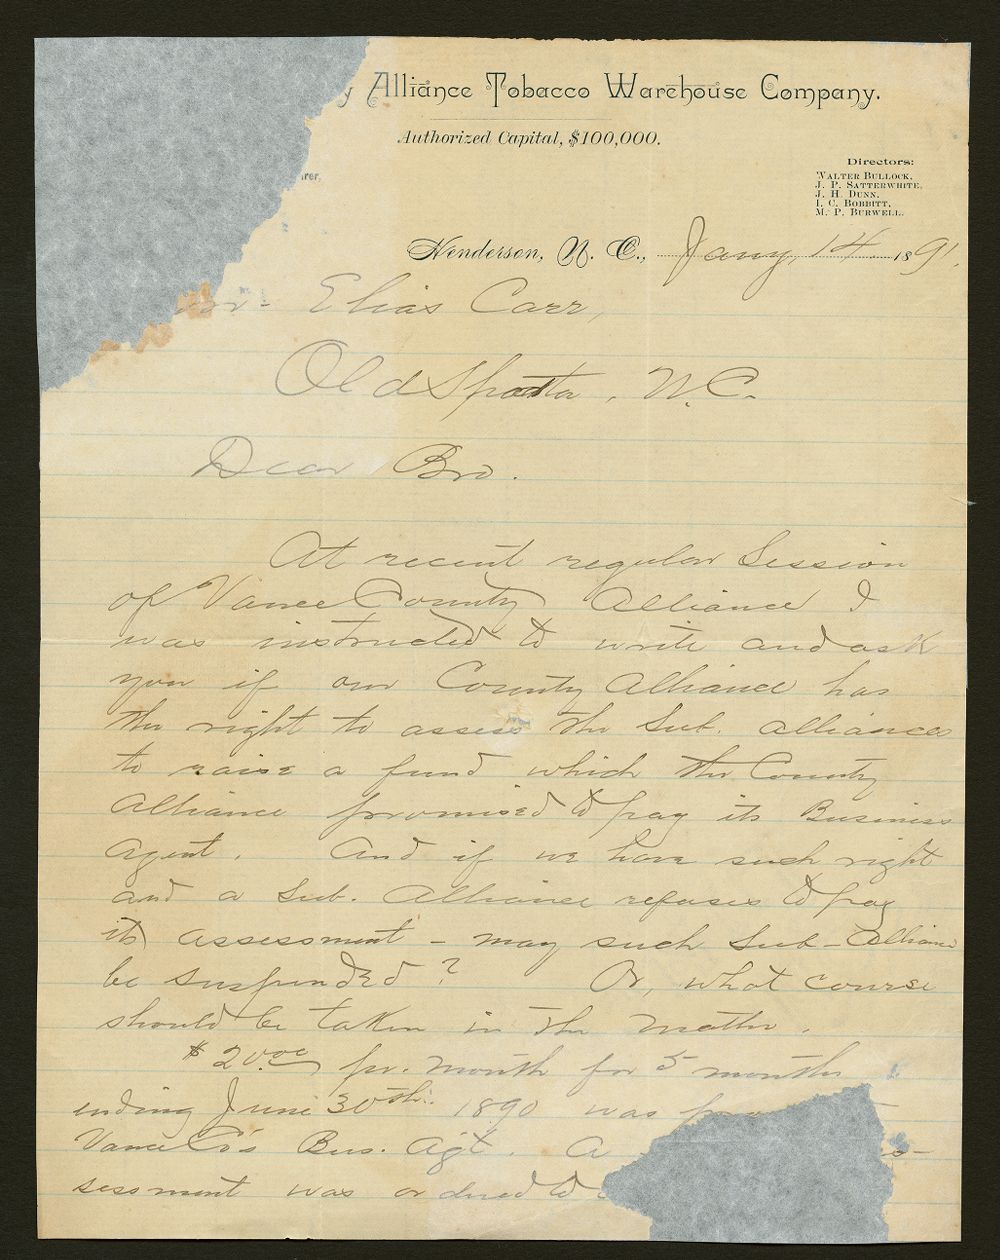 y Alliance Tobacco Warehouse Company.
Authorized Capital, $100,000.
rer.
Directors:
Walter Bullock,
J. P. Satterwhite,
J. H. Dunn,
I. C. Bobbitt,
M. P. Burwell.
Henderson, N. C., Jany, 14 1891.
Elias Carr,
Old Sparta, N.C.
Dear Bro.
At recent regular Session
of Vance County Alliance I
was instructed to write and ask
you if our County Alliance has
the right to assess the Sub. alliances
to raise a fund which the County
Alliance promised to pay its Business
Agent. And if we have such right
and a Sub. Alliance refuses to pay
its assessment - may such Sub-Alliance
be suspended? Or, what course
should be taken in the matter.
$20.00 pr. month for 5 months
ending June 30th. 1890 was
Vance Co's Bus. Agt. A
sessment was ordered to